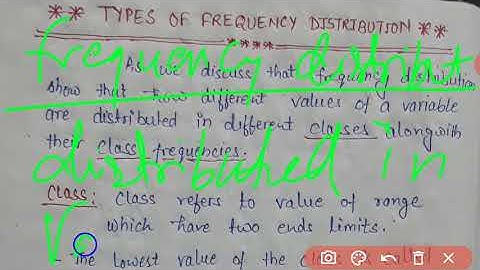 ** TYPES OF FREQUENCY DISTRIBUTION **
****
As we discuss that frequency distribution
show that how different values of a variable
are distributed in different classes along with
their class frequencies.
Class: Class refers to value of range
which have two ends limits.
- The lowest value of the class is called
frequency distribut
distributed in